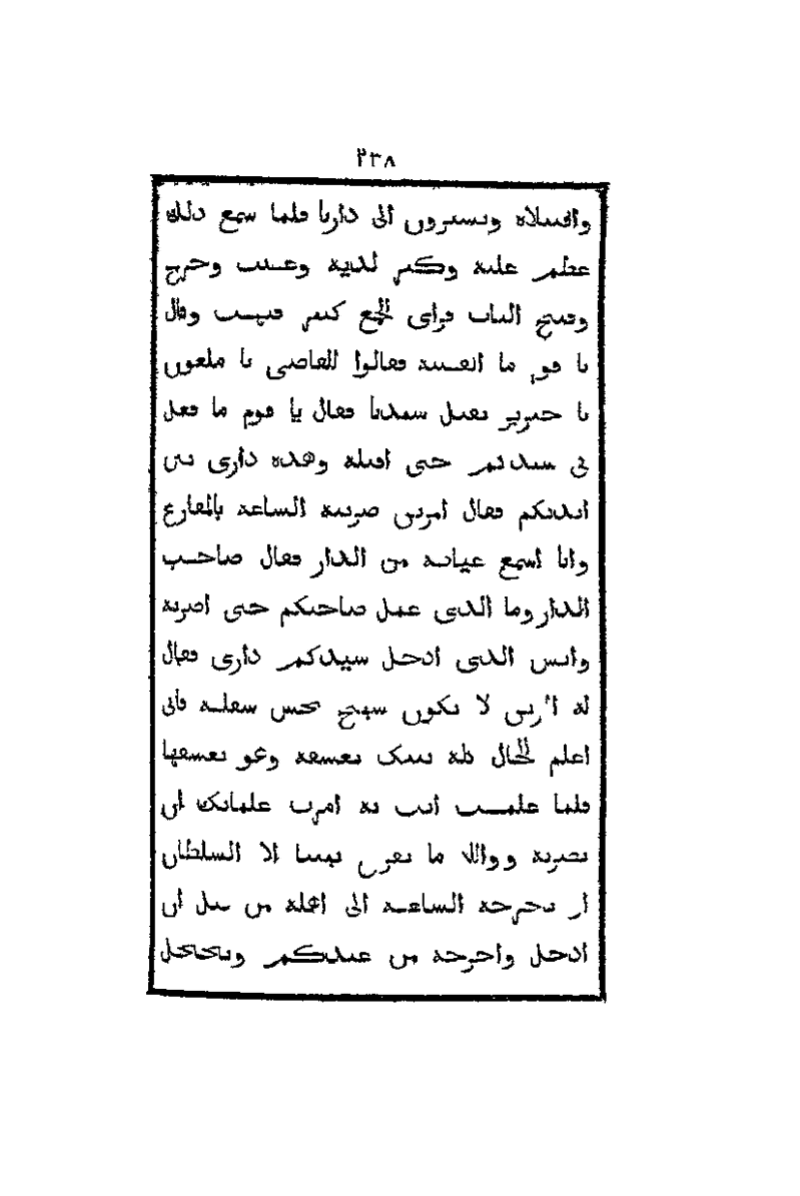 ٢٣٨
واقتتلاه وتسيرون الى دارنا فلما سمع ذلك
عظم عليه وكبر لديه وغضب وخرج
وفتح الباب فراى الجمع كثير فبهت وقال
يا قوم ما القصة فقالوا للقاضى يا ملعون
يا خنزير تقتل سيدنا فقال يا قوم ما فعل
بى سيدكم حتى اقتله وهذه دارى بين
ايديكم فقال امزين ضربته الساعة بالمقارع
وانا اسمع عياته من الدار فقال صاحب
الدار وما الذى عمل صاحبكم حتى اضربه
وايش الذى ادخل سيدكم دارى فقال
له المزين لا تكون شيخ نحس سفلة فانى
اعلم الحال كله بنتك تعشقه وهو يعشقها
فلما علمت انت به امرت غلمانك ان
يضربه ووالله ما يفرق بيننا الا السلطان
او تخرجه الساعة الى اهله من قبل ان
ادخل واخرجه من عندكم وتخاجل